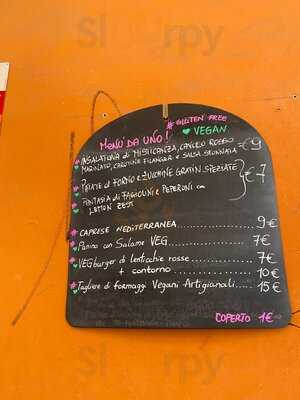 Slurpy
* GLUTEN FREE
♥ VEGAN
MENÙ DA UNO!
* INSALATONA di MISTICANZA, CAVOLO ROSSO
MARINATO, CAROTINE FILANGER e SALSA SFUNNATA €9
* PATATE al FORNO e ZUCCHINE GRATIN. SPEZIATE
FANTASIA di FAGIOLINI e PEPERONI con
LEMON ZEST €7
* CAPRESE MEDITERRANEA........ 9€
Panino con Salame VEG........ 7€
* VEGburger di lenticchie rosse........ 7€
+ contorno........ 10€
* Tagliere di formaggi Vegani Artigianali.... 15€
COPERTO 1€